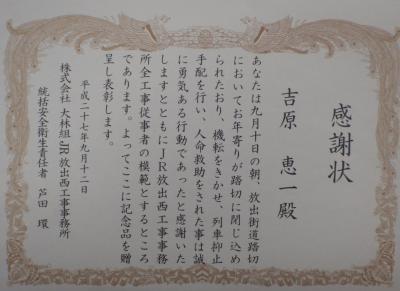 感謝状
吉原 恵一殿
あなたは九月十日の朝、放出街道踏切
においてお年寄りが踏切に閉じ込め
られたおり、機転をきかせ、列車抑止
手配を行い、人命救助をされた事は誠
に勇気ある行動であったと感謝いた
しますとともにJR放出西工事事務
所全工事従事者の模範とするところ
であります。よってここに記念品を贈
呈し表彰します。
平成二十七年九月十二日
株式会社 大林組JR放出西工事事務所
統括安全衛生責任者 芦田 環